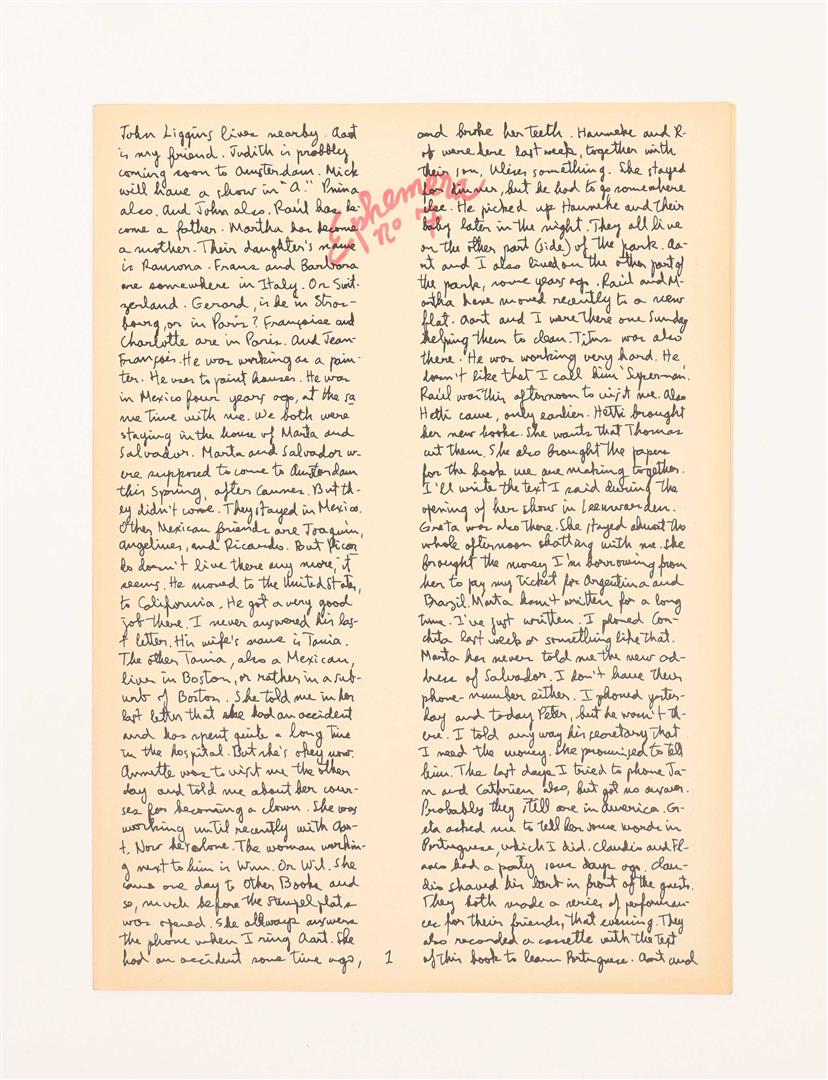 John Liggins lives nearby. Aart
is my friend. Judith is probbly
coming soon to Amsterdam. Mick
will have a show in "A." Pnina
also. And John also. Raúl has be-
come a father. Martha has become
a mother. Their daughter's name
is Ramona. Frans and Barbara
are somewhere in Italy. Or Swit-
zerland. Gerard, is he in Stras-
bourg, or in Paris? Françoise and
Charlotte are in Paris. And Jean-
François. He was working as a pain-
ter. He uses to paint houses. He was
in Mexico four years ago, at the sa
me time with me. We both were
staying in the house of Marta and
Salvador. Marta and Salvador w-
ere supposed to come to Amsterdam
this Spring, after Cannes. But th-
ey didn't come. They stayed in Mexico.
Other Mexican friends are Joaquín,
Angelines, and Ricardo. But Ricar
do doesn't live there any more, it
seems. He moved to the United States,
to California. He got a very good
job there. I never answered his las-
t letter. His wife's name is Tania.
The other Tania, also a Mexican,
lives in Boston, or rather in a sub-
urb of Boston. She told me in her
last letter that she had an accident
and has spent quite a long time
in the hospital. But she's okey now.
Annette was to visit me the other
day and told me about her cour-
ses for becoming a clown. She was
working until recently with Aar-
t. Now he's alone. The woman workin-
g next to him is Wim. Or Wil. She
came one day to Other Books and
so, much before the stempelplats
was opened. She allways answers
the phone when I ring Aart. She
had an accident some time ago,
1
and broke her teeth. Hanneke and R-
of were here last week, together with
their son, Ulises something. She stayed
for dinner, but he had to go somewhere
else. He picked up Hanneke and their
baby later in the night. They all live
on the other part (side) of the park. Aa-
rt and I also lived on the other part of
the park, some years ago. Raúl and M-
artha have moved recently to a new
flat. Aart and I were there one Sunday
helping them to clean. Titus was also
there. He was working very hard. He
doesn't like that I call him 'Superman'.
Raúl was this afternoon to visit me. Also
Hetti came, only earlier. Hetti brought
her new books. She wants that Thomas
cut them. She also brought the papers
for the book we are making together.
I'll write the text I said during the
opening of her show in Leeuwarden.
Greta was also there. She stayed almost the
whole afternoon chatting with me. She
brought the money I'm borrowing from
her to pay my ticket for Argentina and
Brazil. Marta hasn't written for a long
time. I've just written. I phoned Con-
chita last week or something like that.
Marta has never told me the new ad-
dress of Salvador. I don't have their
phone-number either. I phoned yester-
day and today Peter, but he wasn't th-
ere. I told any way his secretary that
I need the money. She promised to tell
him. The last days I tried to phone Ja-
n and Cathrien also, but got no answer.
Probably they still are in America. Gr-
eta asked me to tell her some words in
Portuguese, which I did. Claudio and Fl-
avio had a party some days ago. Clau-
dio shaved his beard in front of the guests.
They both made a series of performan-
ces for their friends, that evening. They
also recorded a cassette with the text
of this book to learn Portuguese. Aart and
Ephemera
no 7